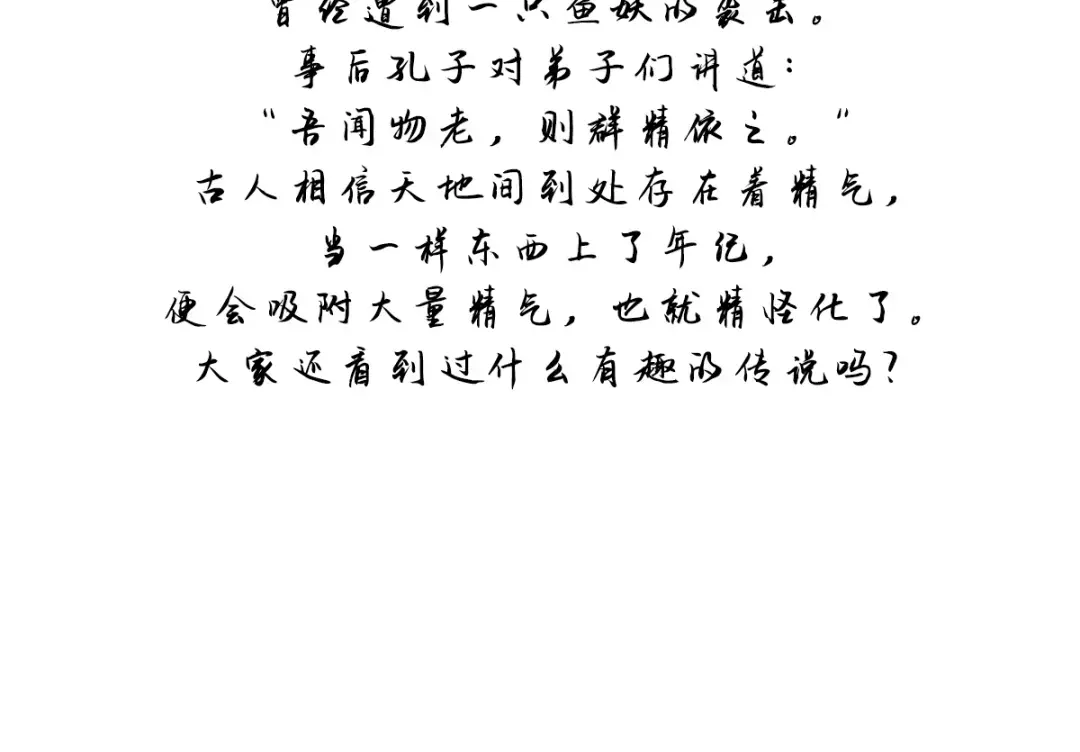 曾经遭到一只鱼妖的袭击。
事后孔子对弟子们讲道：
“吾闻物老，则群精依之。”
古人相信天地间到处存在着精气，
当一样东西上了年纪，
便会吸附大量精气，也就精怪化了。
大家还看到过什么有趣的传说吗？